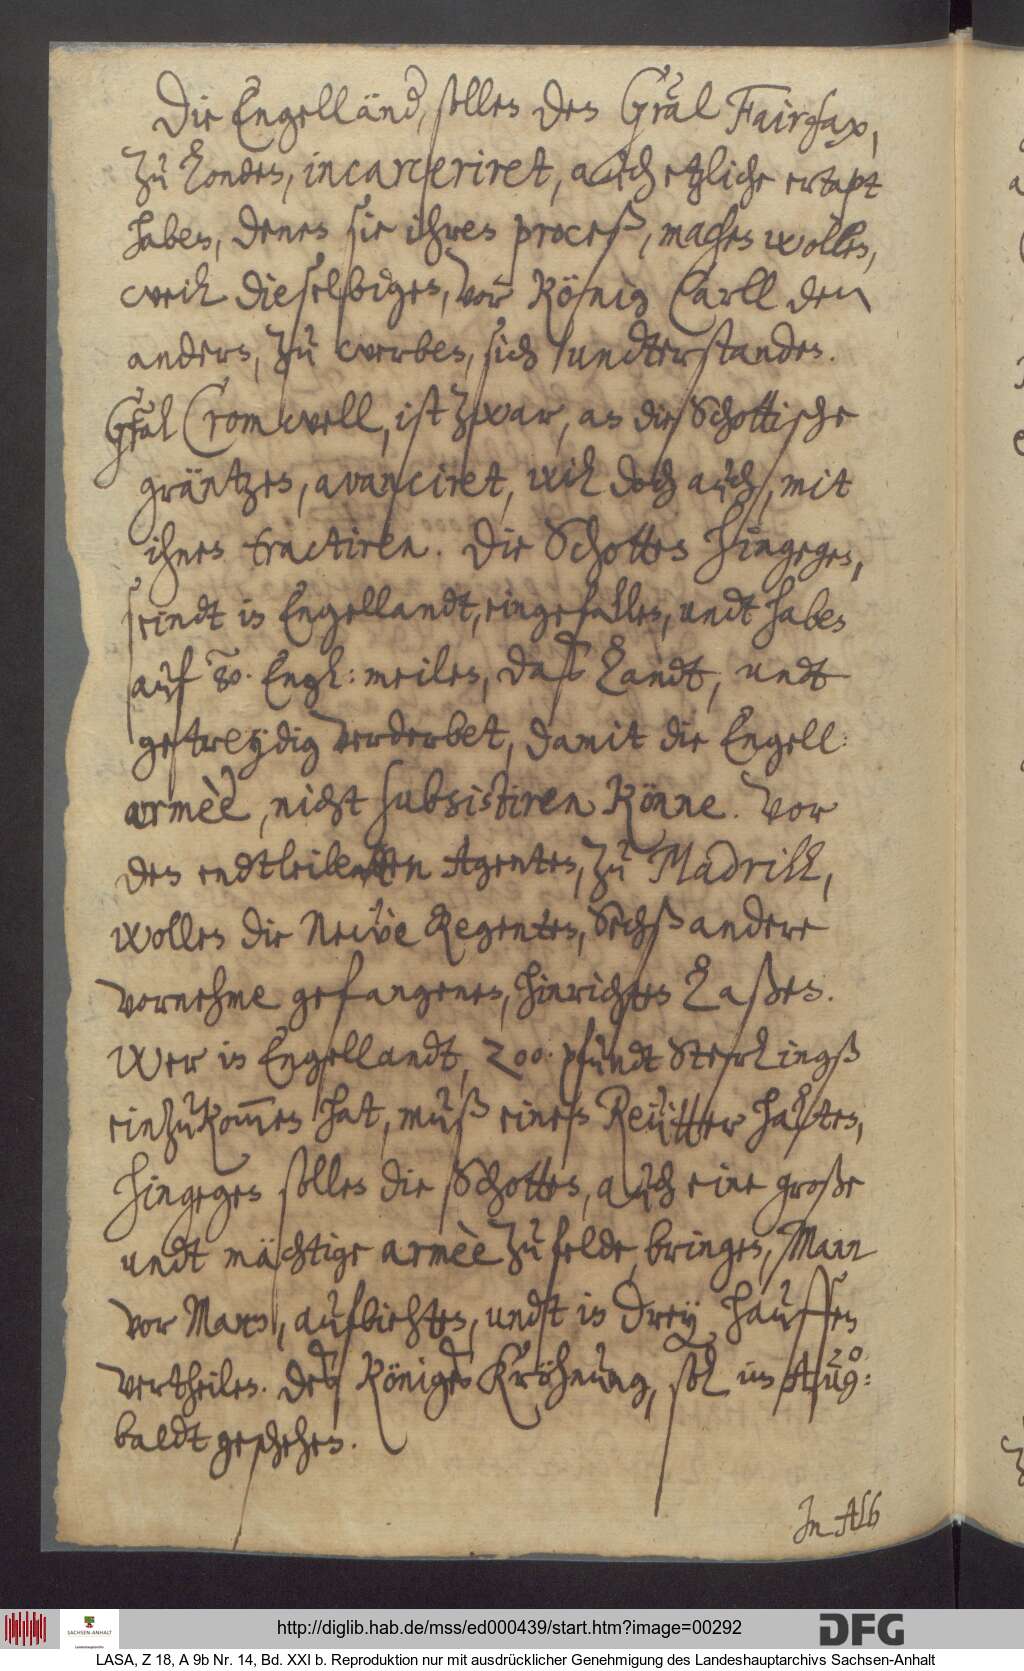 Die Engelländ, sollen den Gral Fairfax,
zu Londen, incarceriret, auch etzliche ertapt
haben, denen sie ihren proceß, machen wollen,
weil dieselbigen, vor König Carll den
andern, zu werben, sich undterstanden.
Gral Cromwell, ist zwar, an die Schottische
gräntzen, avanciret, will doch auch, mit
ihnen tractiren. Die Schotten hingegen,
seindt in Engellandt, eingefallen, undt haben
auf 80. Engl: meilen, daß Landt, undt
getreydig verderbet, damit die Engell:
armèè, nicht subsistiren könne. Vor
den endtleibten Agenten, zu Madrill,
wollen die Neuèn Regenten, Sechß andere
vornehme gefangenen, hinrichten laßen.
Wer in Engellandt, 200. pfundt Sterlingß
einzukommen hat, muß einen Reütter halten,
hingegen sollen die Schotten, auch eine große
undt mächtige armèè zu felde, bringen, Mann
vor Mann, aufbiehten, undt in drey hauffen
vertheilen. Des Königes Kröhnung, soll im Aug:
baldt geschehen.
In Alb
http://diglib.hab.de/mss/ed000439/start.htm?image=00292
DFG
SACHSEN-ANHALT
LASA, Z 18, A 9b Nr. 14, Bd. XXI b. Reproduktion nur mit ausdrücklicher Genehmigung des Landeshauptarchivs Sachsen-Anhalt